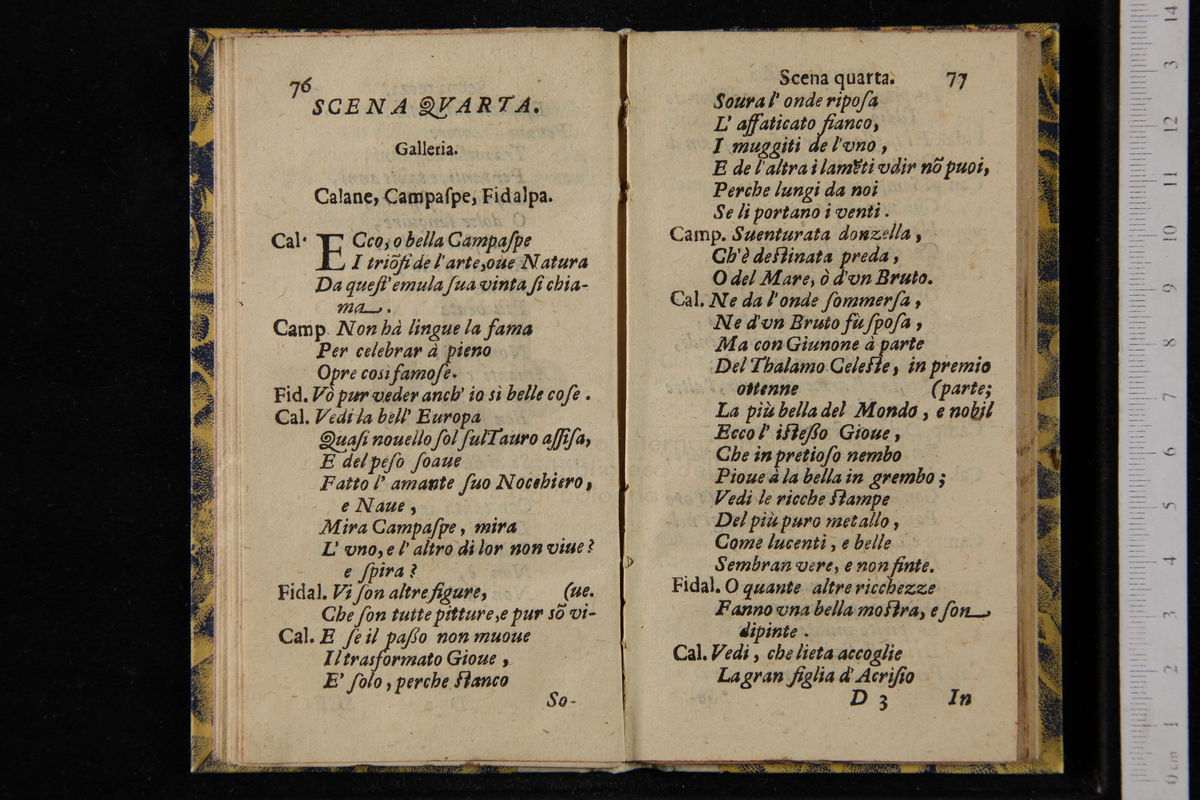 76
SCENA QVARTA.
Galleria.
Calane, Campaſpe, Fidalpa.
Cal. ECco, o bella Campaſpe
I triõfi de l'arte, oue Natura
Da queſt' emula ſua vinta ſi chia-
ma.
Camp Non hà lingue la fama
Per celebrar à pieno
Opre così famoſe.
Fid. Vò pur veder anch' io sì belle coſe.
Cal. Vedi la bell' Europa
Quaſi nouello ſol ſul Tauro aſſiſa,
E del peſo ſoaue
Fatto l' amante ſuo Nocchiero,
e Naue,
Mira Campaſpe, mira
L' vno, e l' altro di lor non viue?
e ſpira?
Fidal. Vi ſon altre figure, (ue.
Che ſon tutte pitture, e pur sõ vi-
Cal. E ſe il paßo non muoue
Il trasformato Gioue,
E' ſolo, perche ſtanco
So-
Scena quarta. 77
Soura l' onde ripoſa
L' affaticato fianco,
I muggiti de l'vno,
E de l'altra i lamẽti vdir nõ puoi,
Perche lungi da noi
Se li portano i venti.
Camp. Suenturata donzella,
Ch'è deſtinata preda,
O del Mare, ò d'vn Bruto.
Cal. Ne da l'onde ſommerſa,
Ne d'vn Bruto fù ſpoſa,
Ma con Giunone à parte
Del Thalamo Celeſte, in premio
ottenne (parte;
La più bella del Mondo, e nobil
Ecco l' iſteßo Gioue,
Che in pretioſo nembo
Pioue à la bella in grembo;
Vedi le ricche ſtampe
Del più puro metallo,
Come lucenti, e belle
Sembran vere, e non finte.
Fidal. O quante altre ricchezze
Fanno vna bella moſtra, e ſon
dipinte.
Cal. Vedi, che lieta accoglie
La gran figlia d' Acriſio
D 3 In
0 cm 1 2 3 4 5 6 7 8 9 10 11 12 3 14